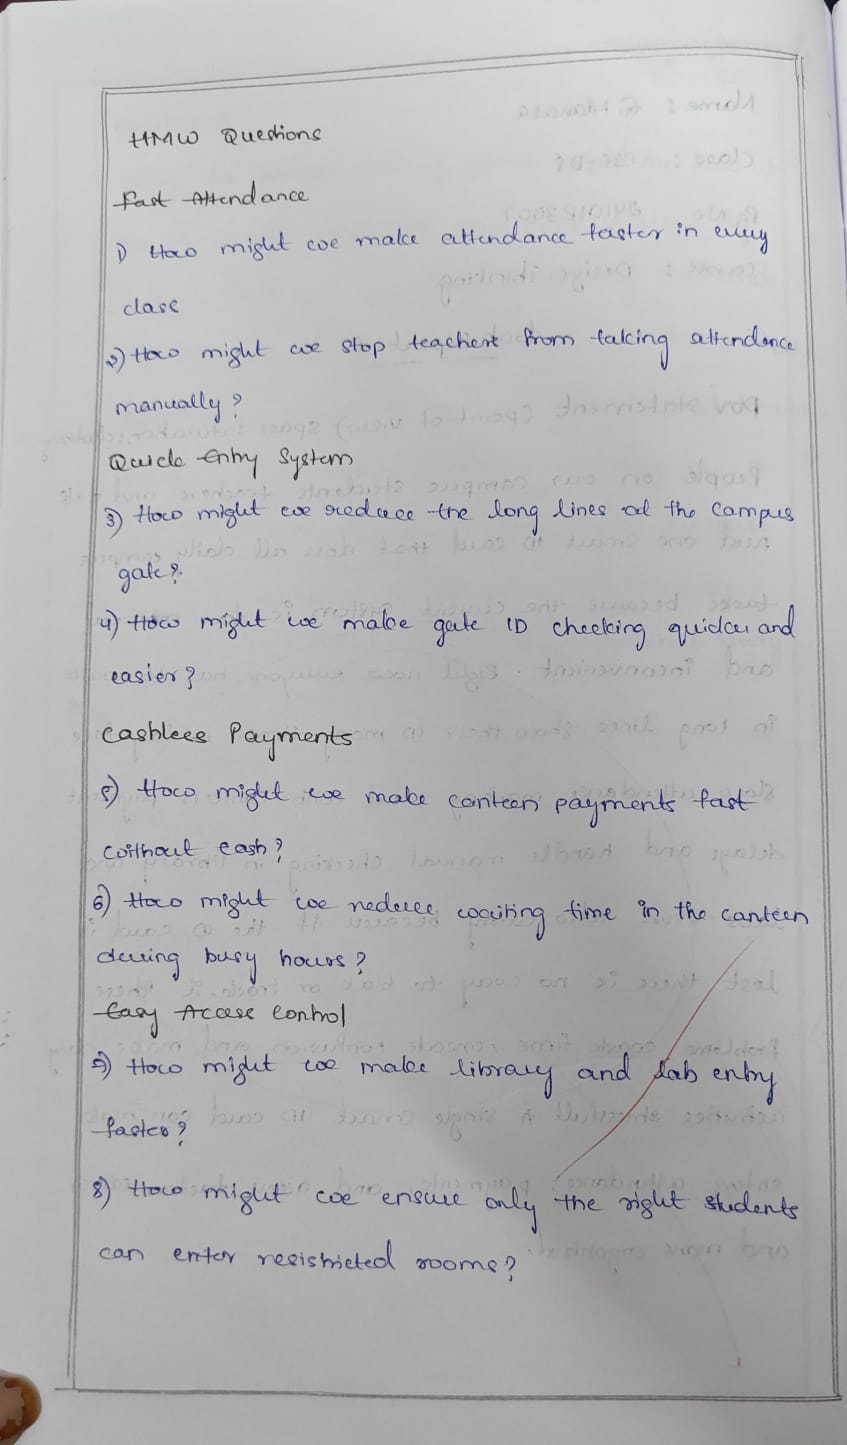 HMW Questions
Fast Attendance
1) How might we make attendance faster in every
class
2) How might we stop teachers from taking attendance
manually?
Quick Entry System
3) How might we reduce the long lines at the campus
gate?
4) How might we make gate ID checking quicker and
easier?
Cashless Payments
5) How might we make canteen payments fast
without cash?
6) How might we reduce waiting time in the canteen
during busy hours?
Easy Access Control
7) How might we make library and lab entry
faster?
8) How might we ensure only the right students
can enter resistricted rooms?